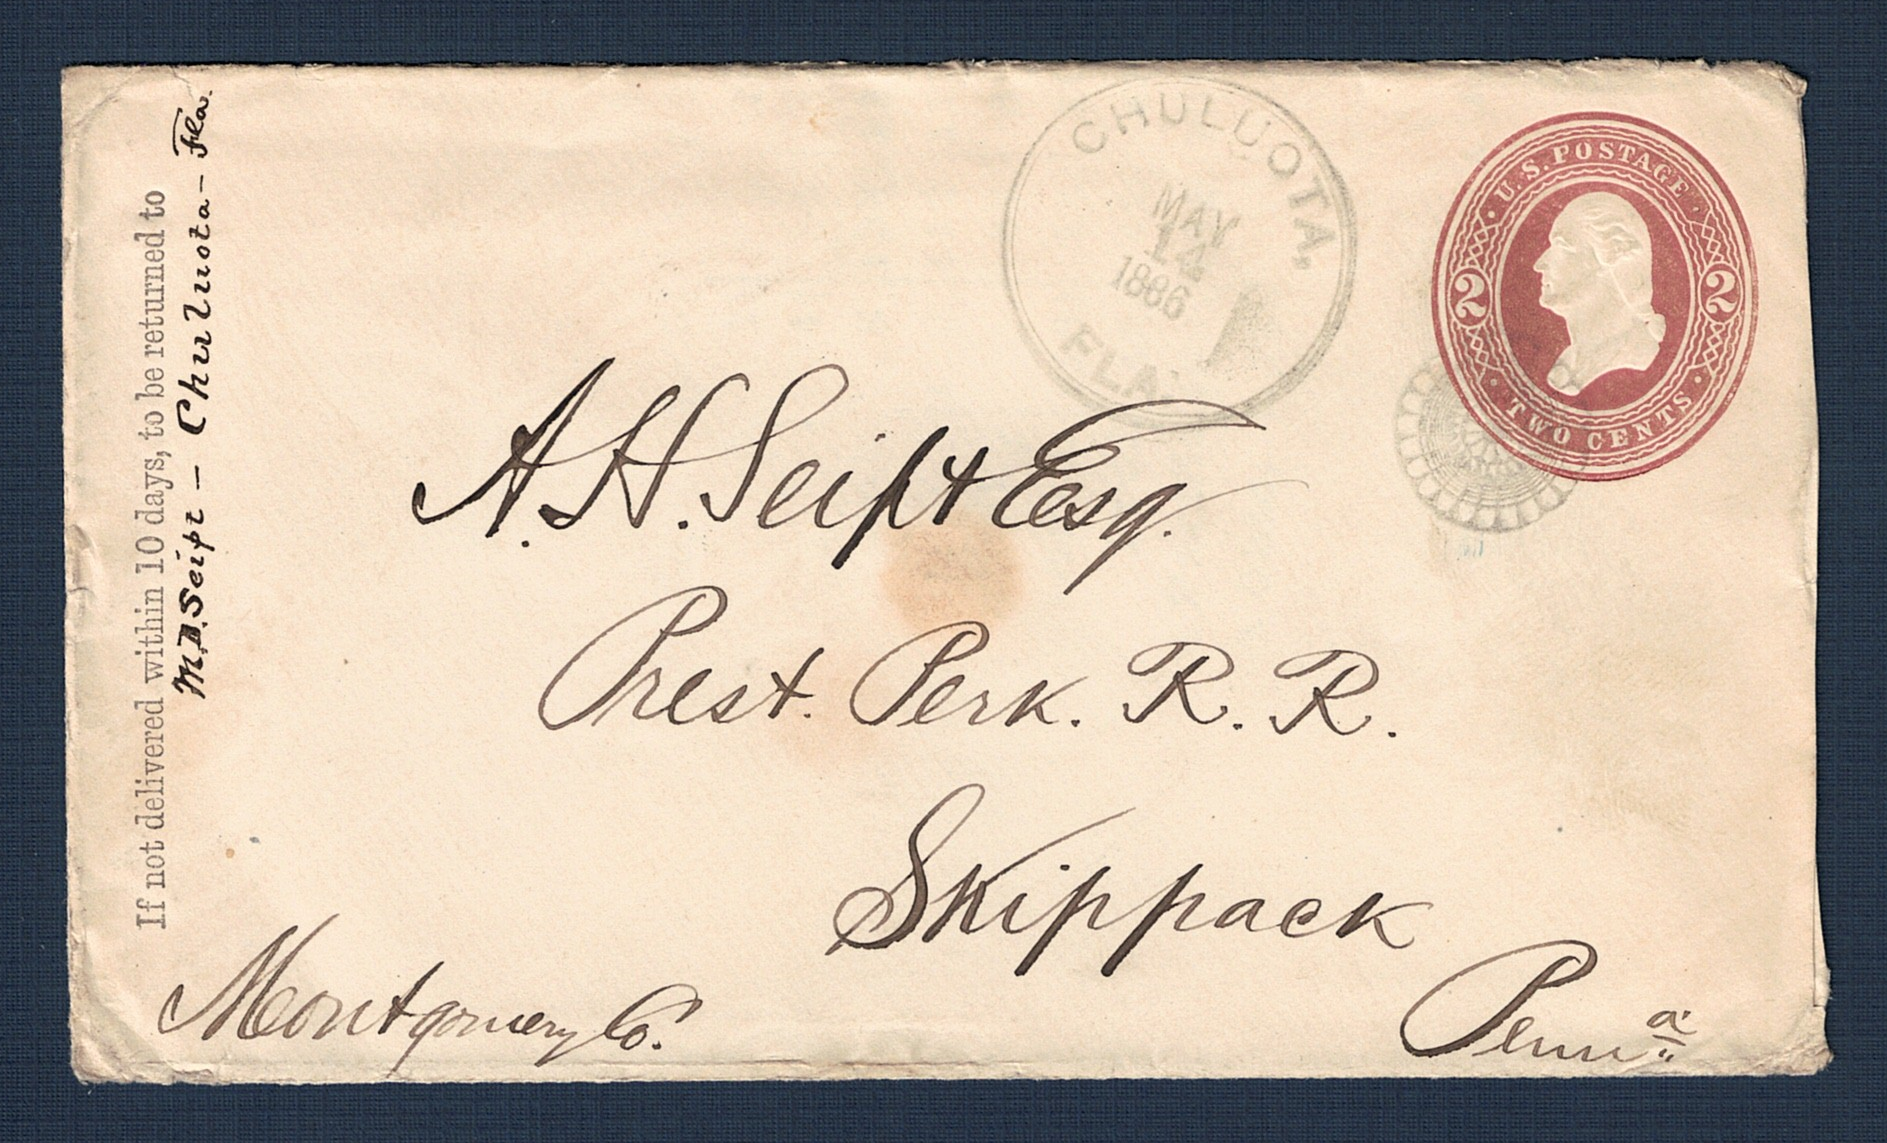 If not delivered within 10 days, to be returned to
M.D. Seipt - Chuluota - Fla.
CHULUOTA,
MAY
14
1886
FLA.
U.S. POSTAGE
2 2
TWO CENTS
A. H. Seipt Esq.
Prest. Perk. R. R.
Skippack
Montgomery Co.
Penna